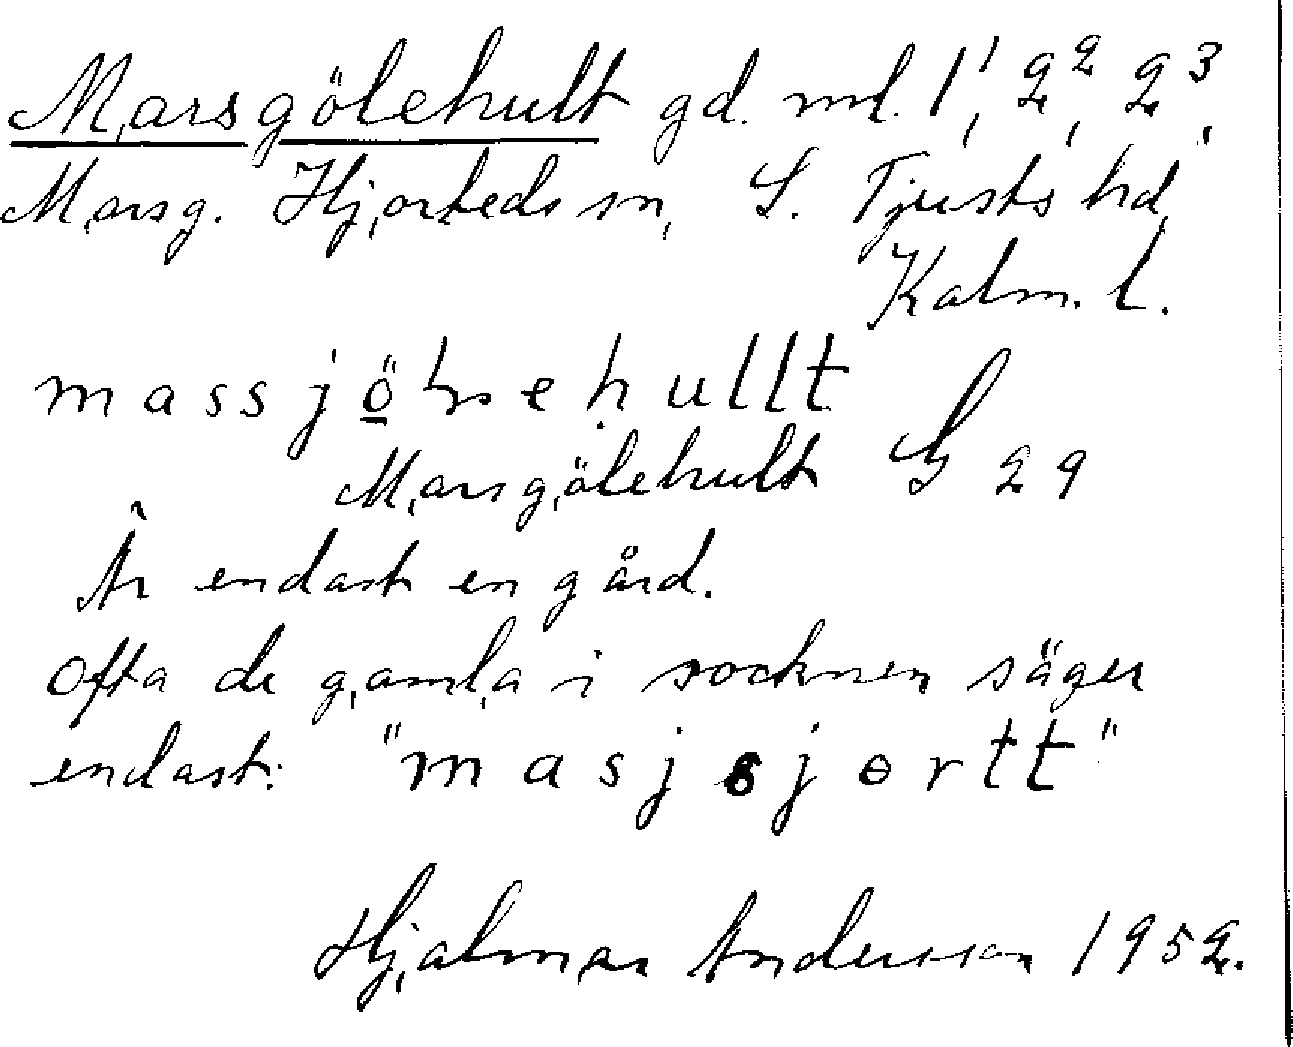 Marsgölehult gd. ml. 1¹, 2², 2³,
Marsg. Hjorteds sn, S. Tjusts hd,
Kalm. l.
massjölsehullt
Marsgölehult G 29
Är endast en gård.
Ofta de gamla i socknen säger
endast: "masjsjortt"
Hjalmar Andersson 1952.